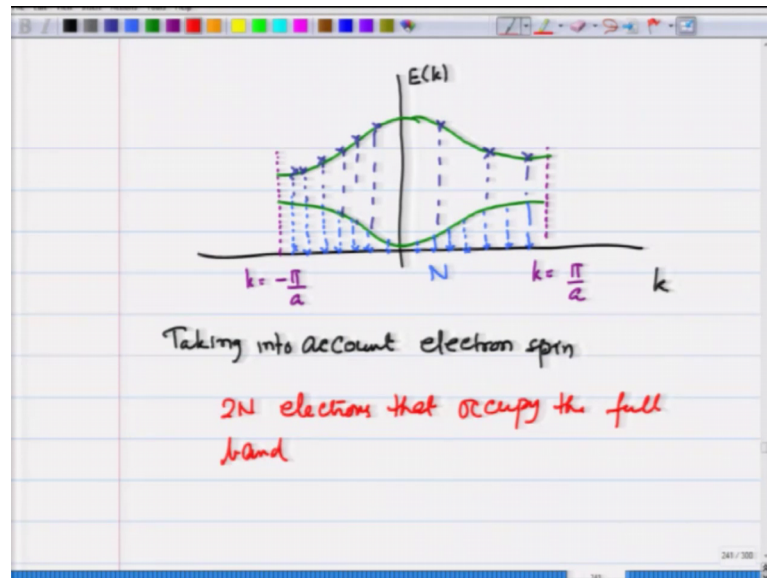 E(k)
N
k = -π/a
k = π/a
k
Taking into account electron spin
2N electrons that occupy the full
band
241 / 300